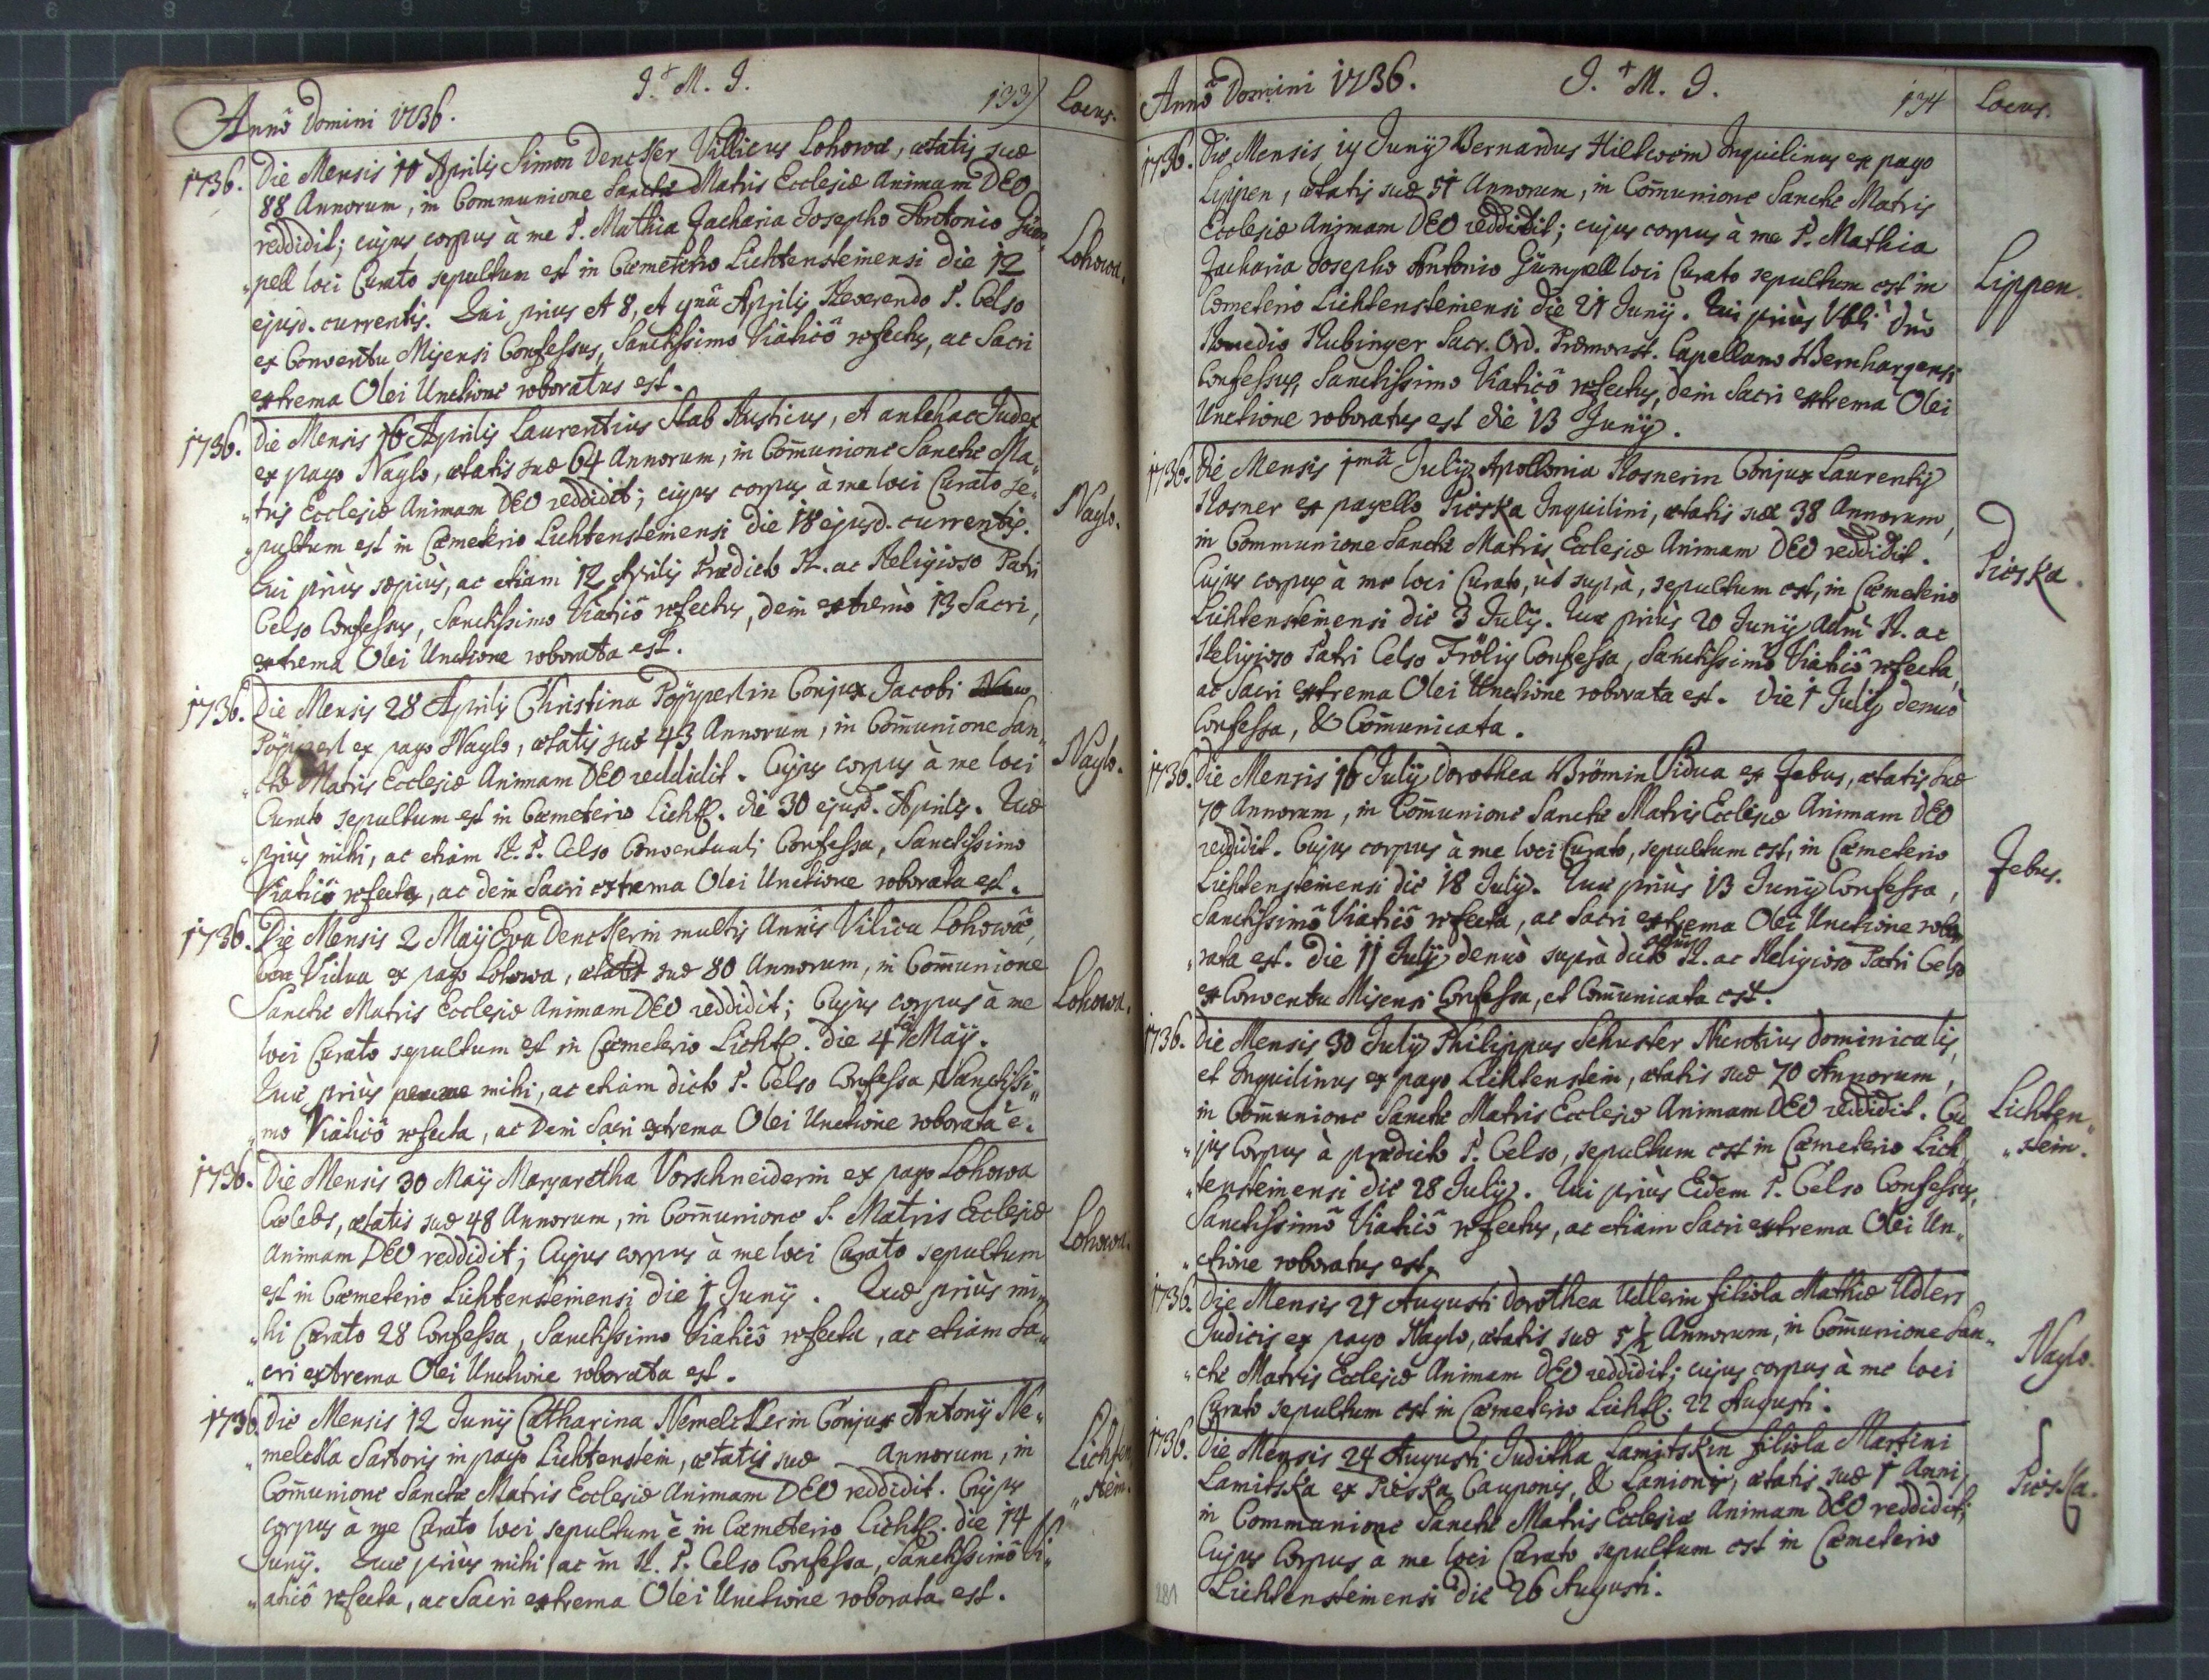 Annô Domini 1736. J. M. J. 133) Locus.
1736. Die Mensis 10 Aprilis Simon Dencker Villicus Lohowæ, ætatis suæ
88 Annorum, in Communione Sanctæ Matris Ecclesiæ Animam DEO
reddidit; cujus corpus à me P. Mathia Zacharia Josepho Antonio Güm„
„pell loci Curato sepultum est in Cæmeterio Lichtensteinensi die 12 Lohowa.
ejusd. currentis. Qui prius et 8, et 9nâ Aprilis Reverendo P. Celso
ex Conventu Misensi Confessus, Sanctissimo Viaticô refectus, ac Sacri
extrema Olei Unctione roboratus est.
1736. Die Mensis 16 Aprilis Laurentius Stab Rusticus, et antehac Judex
ex pago Naglo, ætatis suæ 64 Annorum, in Com̄unione Sanctæ Ma„
„tris Ecclesiæ Animam DEO reddidit; cujus corpus à me loci Curato se„
„pultum est in Cæmeterio Lichtensteinensi die 18 ejusd. currentis. Naglo.
Qui priùs sæpiùs, ac etiam 12 Aprilis Prædicto R. ac Religioso Patri
Celso Confessus, Sanctissimo Viaticô refectus, dein extremò 13 Sacri,
extrema Olei Unctione roborata est.
1736. Die Mensis 28 Aprilis Christina Pöpperlin Conjux Jacobi
Pöpperl ex pago Naglo, ætatis suæ 43 Annorum, in Com̄unione San„
„ctæ Matris Ecclesiæ Animam DEO reddidit. Cujus corpus à me loci Naglo.
Curato sepultum est in Cæmeterio Lichtl. die 30 ejusd. Aprilis. Quæ
priùs mihi, ac etiam R. P. Celso Conventuali Confessa, Sanctissimo
Viaticô refecta, ac dein Sacri extrema Olei Unctione roborata est.
1736. Die Mensis 2 Maÿ Eva Denckerin multis Annis Vilica Lohowæ,
Vidua ex pago Lohowa, ætatis suæ 80 Annorum, in Com̄unione
Sanctæ Matris Ecclesiæ Animam DEO reddidit; Cujus corpus à me Lohowa.
loci Curato sepultum est in Cæmeterio Lichtl. die 4tâ Maÿ.
Quæ priùs mihi, ac etiam dicto P. Celso Confessa, Sanctissi„
„mo Viaticô refecta, ac Dein Sacri extrema Olei Unctione roborata ē.
1736. Die Mensis 30 Maÿ Margaretha Vorschneiderin ex pago Lohowa
Cælebs, ætatis suæ 48 Annorum, in Com̄unione S. Matris Ecclesiæ
Animam DEO reddidit; Cujus corpus à me loci Curato sepultum Lohowa.
est in Cæmeterio Lichtensteinensi die 1 Junÿ. Quæ priùs mi„
„hi Curato 28 Confessa, Sanctissimo Viaticô refecta, ac etiam Sa„
„cri extrema Olei Unctione roborata est.
1736. Die Mensis 12 Junÿ Catharina Nemelckerin Conjux Antonÿ Ne„
„melcka Sartoris in pago Lichtenstein, ætatis suæ Annorum, in Lichten„
Com̄unione Sanctæ Matris Ecclesiæ Animam DEO reddidit. Cujus „stein.
corpus à me Curato loci sepultum ē in Cæmeterio Lichtl. die 14
Junÿ. Quæ priùs mihi ac R. P. Celso Confessa, Sanctissimô Vi„
„aticô refecta, ac Sacri extrema Olei Unctione roborata est.
Annô Domini 1736. J. M. J. 134 Locus.
1736. Die Mensis 19 Junÿ Bernardus Hiltwein Inquilinus ex pago
Lippen, ætatis suæ 51 Annorum, in Com̄unione Sanctæ Matris
Ecclesiæ Animam DEO reddidit; cujus corpus à me P. Mathia
Zacharia Josepho Antonio Gümpell loci Curato sepultum est in Lippen.
Cæmeterio Lichtensteinensi die 21 Junÿ. Qui priùs Dno
Rubinger Sacr. Ord. Præmonst. Capellano
Confessus, Sanctissimo Viaticô refectus, dein Sacri extrema Olei
Unctione roboratus est die 13 Junÿ.
1736. Die Mensis 1mâ Julÿ Apollonia Rosnerin Conjux Laurentÿ
Rosner ex pagello Pieska Inquilini, ætatis suæ 38 Annorum,
in Communione Sanctæ Matris Ecclesiæ Animam DEO reddidit.
Cujus corpus à me loci Curato, ùt suprà, sepultum est, in Cæmeterio Pieska.
Lichtensteinensi die 3 Julÿ. Quæ priùs 20 Junÿ Adm̄ R. ac
Religioso Patri Celso Frölig Confessa, Sanctissimô Viaticô refecta,
ac Sacri extrema Olei Unctione roborata est. Die 1 Julÿ denuò
Confessa, & Com̄unicata.
1736. Die Mensis 16 Julÿ Dorothea Brömin Vidua ex Jebus, ætatis suæ
70 Annorum, in Com̄unione Sanctæ Matris Ecclesiæ Animam DEO
reddidit. Cujus corpus à me loci Curato, sepultum est, in Cæmeterio
Lichtensteinensi die 18 Julÿ. Quæ priùs 13 Junÿ Confessa, Jebus.
Sanctissimô Viaticô refecta, ac Sacri extrema Olei Unctione robo
„rata est. Die 11 Julÿ denuò suprà dicto R. ac Religioso Patri Celso
ex Conventu Misensi Confessa, et Com̄unicata est.
1736. Die Mensis 30 Julÿ Philippus Schuster Nuntius Dominicalis,
et Inquilinus ex pago Lichtenstein, ætatis suæ 70 Annorum,
in Com̄unione Sanctæ Matris Ecclesiæ Animam DEO reddidit. Cu Lichten„
„jus Corpus à prædicto P. Celso, sepultum est in Cæmeterio Lich „stein.
„tensteinensi die 28 Julÿ. Qui priùs Eidem P. Celso Confessus,
Sanctissimô Viaticô refectus, ac etiam Sacri extrema Olei Un„
„ctione roboratus est.
1736. Die Mensis 21 Augusti Dorothea Udlerin filiola Mathiæ Udlers
Judicis ex pago Naglo, ætatis suæ 5 ½ Annorum, in Com̄unione San„
„ctæ Matris Ecclesiæ Animam DEO reddidit; cujus corpus à me loci Naglo.
Curato sepultum est in Cæmeterio Lichtl. 22 Augusti.
1736. Die Mensis 24 Augusti Juditha Lamitskin filiola Martini
Lamitska ex Pieska Cauponis, & Lanionis, ætatis suæ 1 Anni, Pieska.
in Communione Sanctæ Matris Ecclesiæ Animam DEO reddidit;
Cujus Corpus à me loci Curato sepultum est in Cæmeterio
Lichtensteinensi Die 26 Augusti.